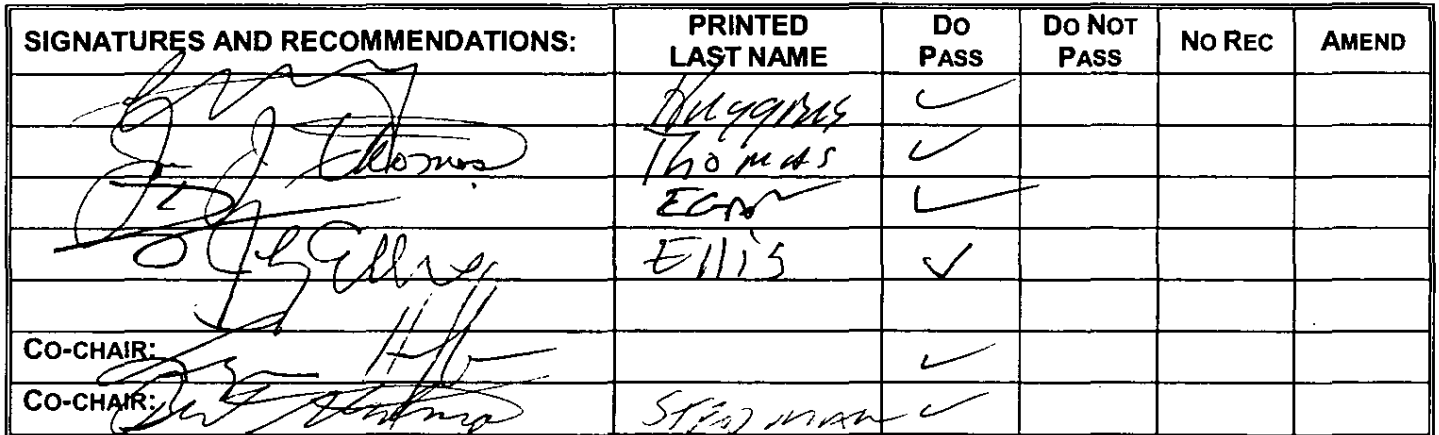 SIGNATURES AND RECOMMENDATIONS: PRINTED LAST NAME DO PASS DO NOT PASS NO REC AMEND
Huggins ✓
J Thomas Thomas ✓
Egan ✓
Ellis Ellis ✓
CO-CHAIR: ✓
CO-CHAIR: Bert Stedman STEDMAN ✓